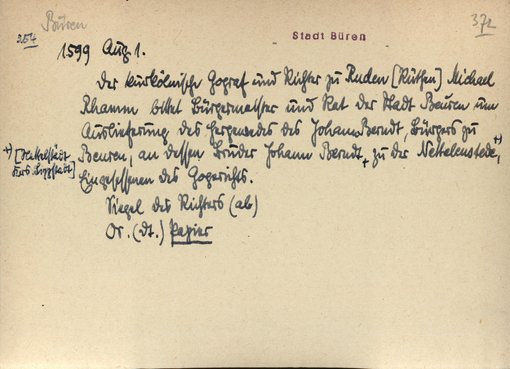 Büren
254
372
Stadt Büren
1599 Aug 1.
Der kurkölnische Gograf und Richter zu Ruden [Rüthen] Michael
Rhamm bittet Bürgermeister und Rat der Stadt Beuren um
Auslieferung des Hergewedes des Johann Berndt, Bürgers zu
Beuren, an dessen Bruder Johann Berndt, zu der Nettelenstede, +)
+) [Nettelstädt
Krs. Lippstadt]
Eingesessenen des Gogerichts.
Siegel des Richters (ab)
Or. (dt.) Papier